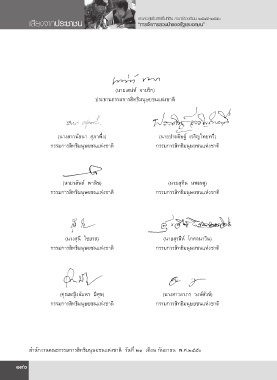 เสียงจากประชาชน
(นายเสน่ห์ จามริก)
ประธานกรรมการสิทธิมนุษยชนแห่งชาติ
(นางสาวนัยนา สุภาพึ่ง) (นายประดิษฐ์ เจริญไทยทวี)
กรรมการสิทธิมนุษยชนแห่งชาติ กรรมการสิทธิมนุษยชนแห่งชาติ
(นายวสันต์ พานิช) (นายสุทิน นพเกตุ)
กรรมการสิทธิมนุษยชนแห่งชาติ กรรมการสิทธิมนุษยชนแห่งชาติ
(นางสุนี ไชยรส) (นายสุรสีห์ โกศลนาวิน)
กรรมการสิทธิมนุษยชนแห่งชาติ กรรมการสิทธิมนุษยชนแห่งชาติ
(คุณหญิงอัมพร มีศุข) (นางสาวอาภร วงษ์สังข์)
กรรมการสิทธิมนุษยชนแห่งชาติ กรรมการสิทธิมนุษยชนแห่งชาติ
สำนักงานคณะกรรมการสิทธิมนุษยชนแห่งชาติ วันที่ เดือน กันยายน พ.ศ.